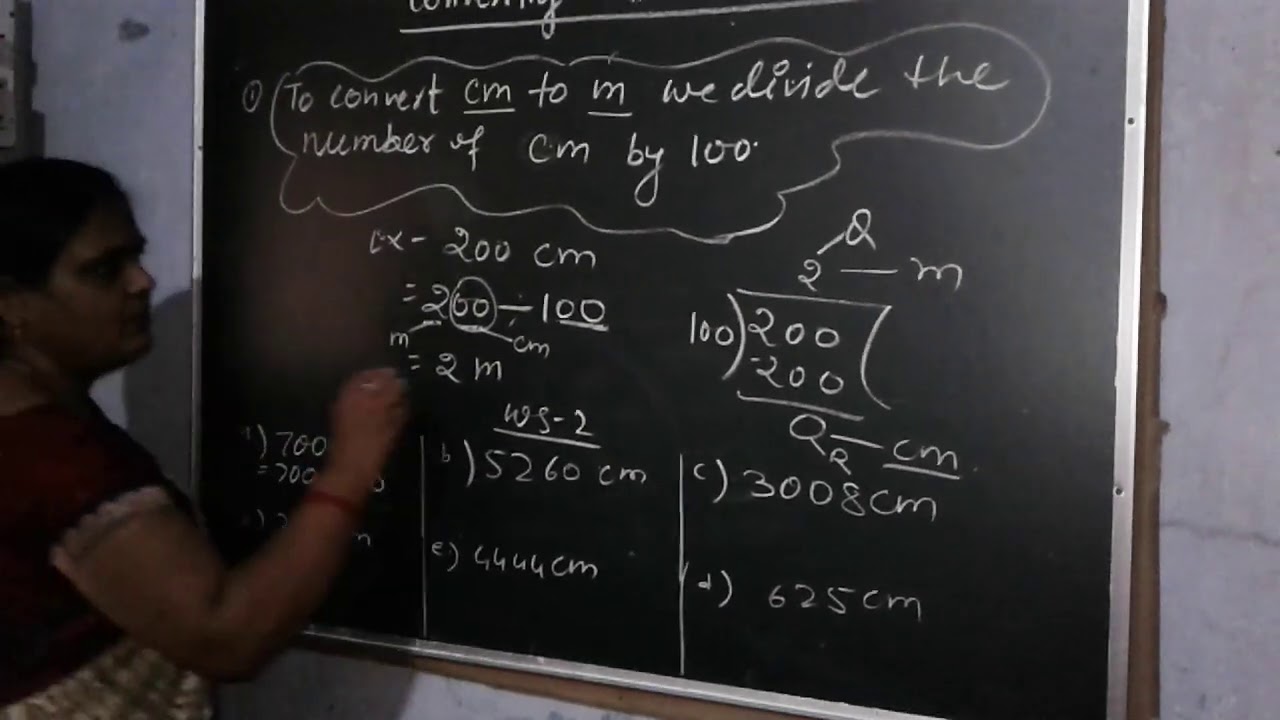 ① To convert cm to m we divide the
number of cm by 100.
ex- 200 cm
= 200 ÷ 100
m cm
= 2 m
Q
2 — m
100) 200 (
-200
0 — cm
R
WS-2
700
= 700
b) 5260 cm
c) 3008cm
e) 4444cm
d) 625cm